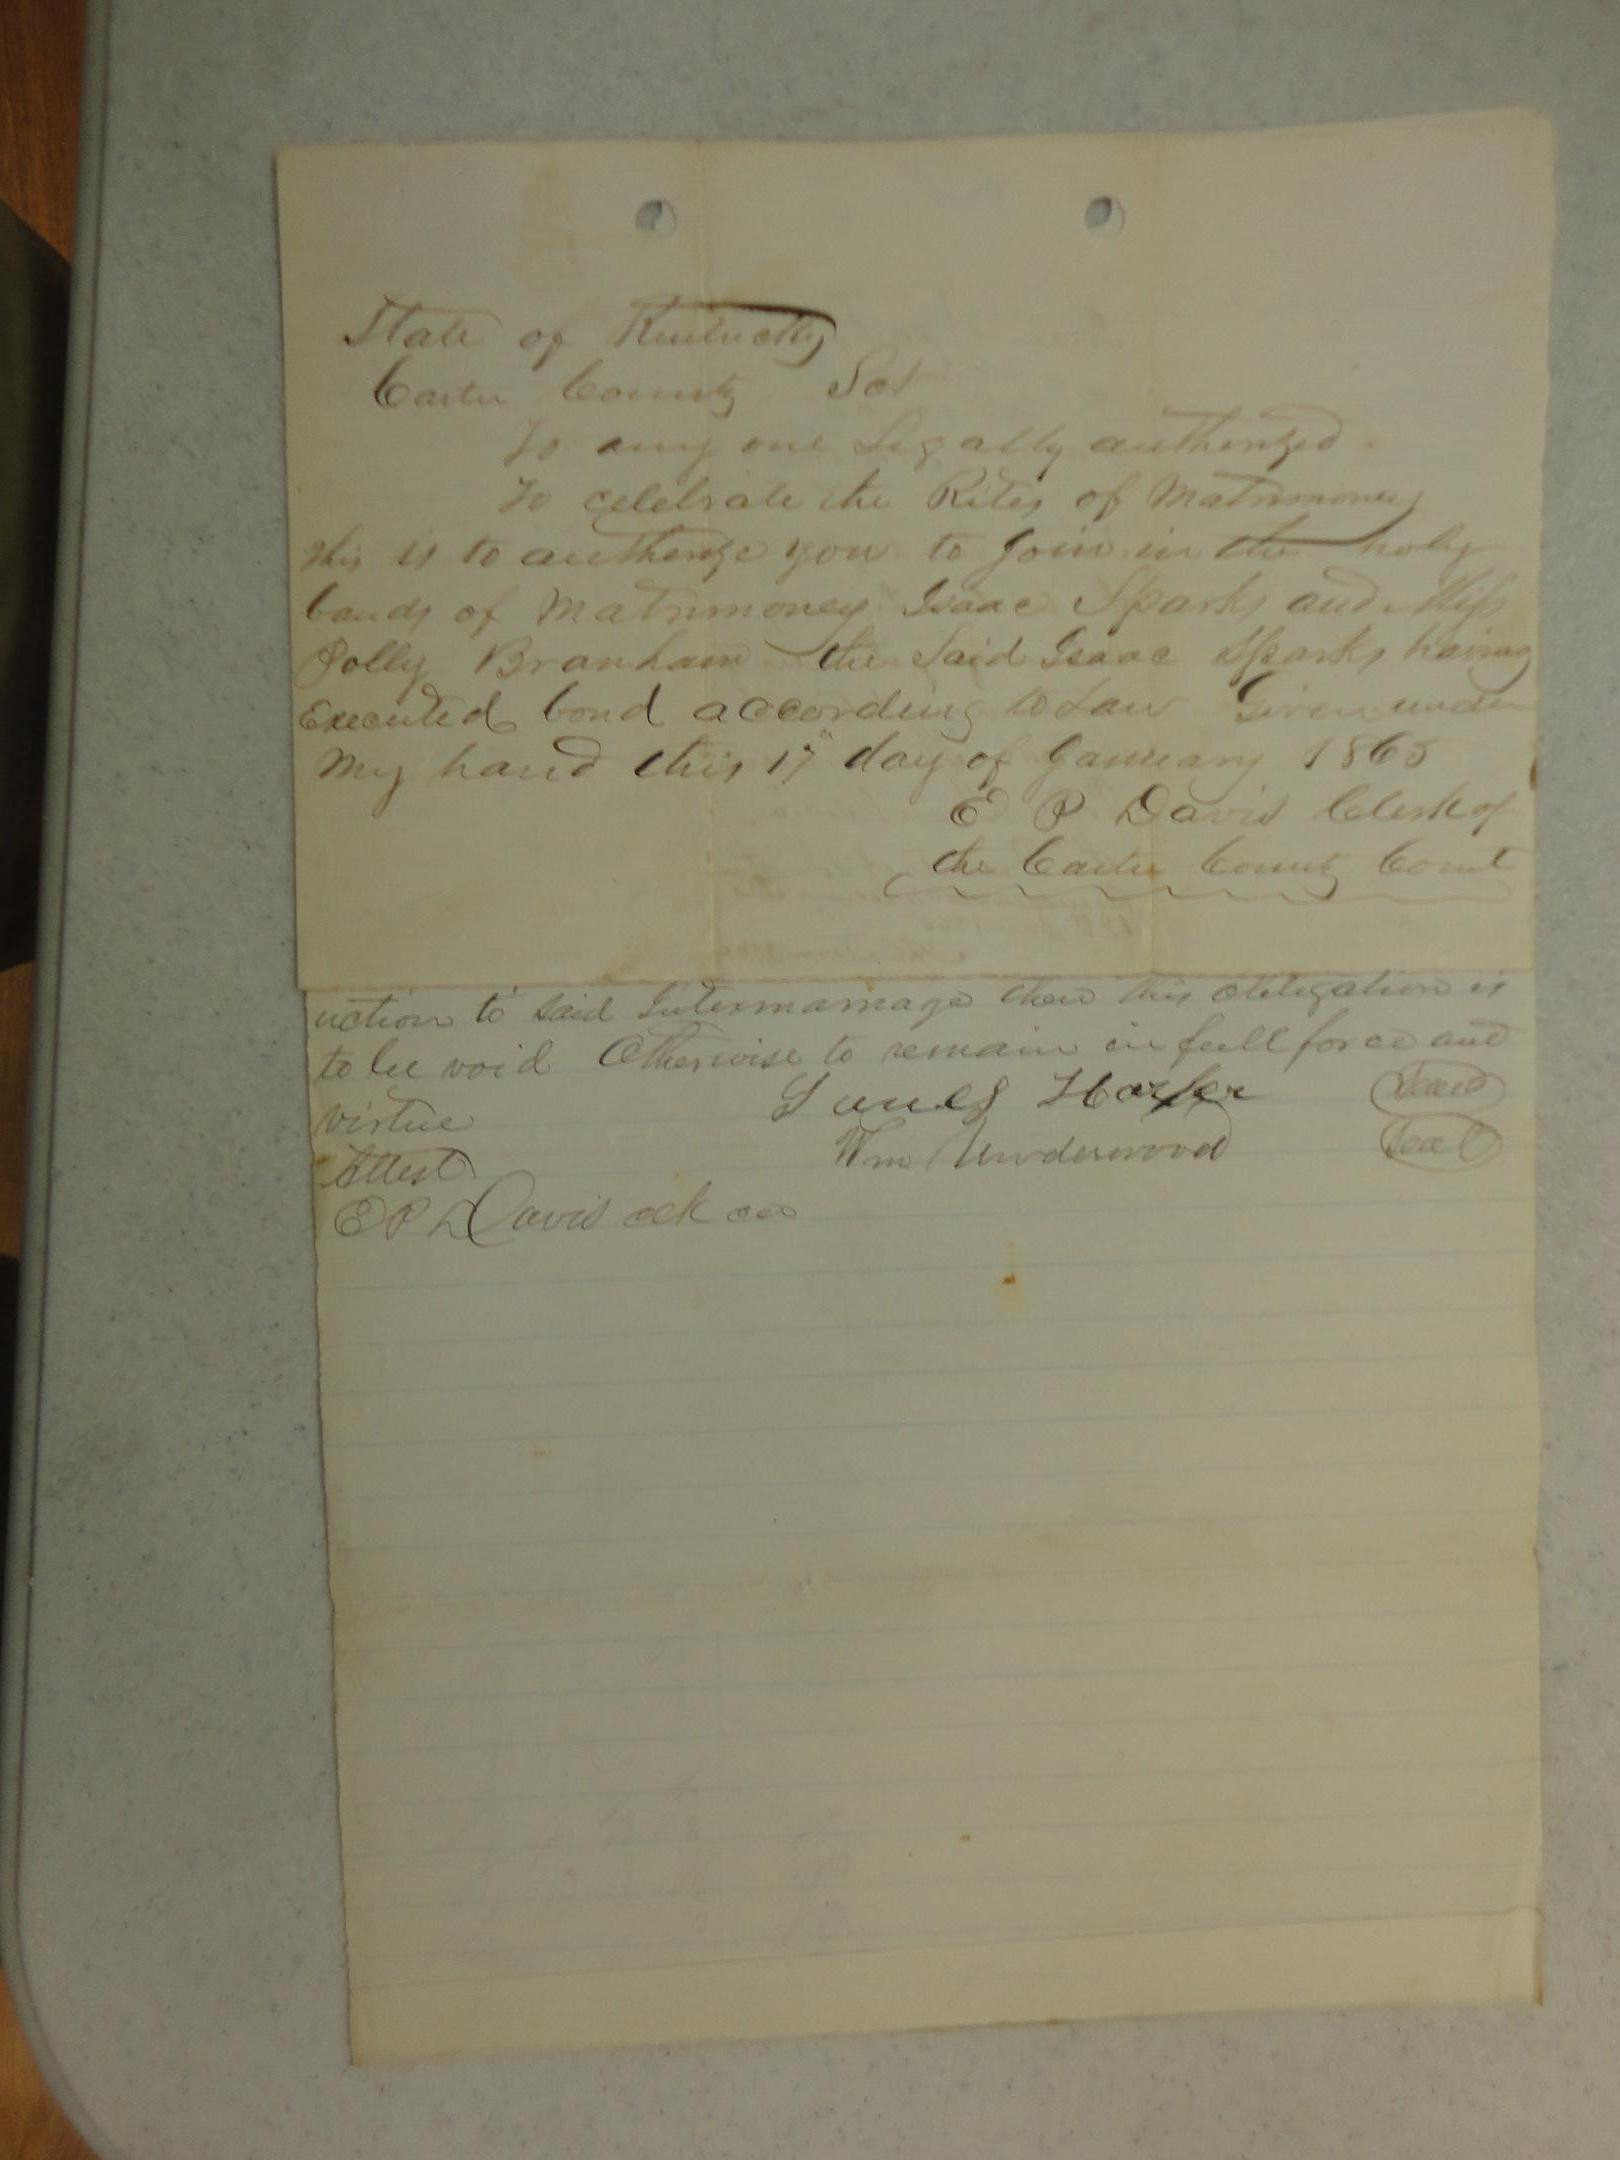 State of Kentucky
Carter County Sct
To any one Legally authorized
To celebrate the Rites of Matrimoney
this is to authorize you to Join in the holy
bands of Matrimoney Isaac Sparks and Miss
Polly Branham the Said Isaac Sparks having
Executed bond according to Law Given under
My hand this 17" day of January 1865
E P Davis Clerk of
the Carter County Court
uction to said Intermarriage then this obligation is
to be void Otherwise to remain in full force and
virtue
Harper Seal
Wm Underwood Seal
Attest
E P Davis